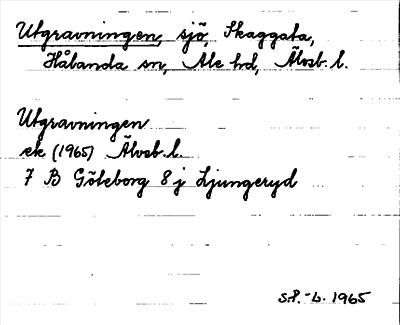 Utgravningen, sjö, Skaggata,
Hålanda sn, Ale hd, Älvsb. l.
Utgravningen
ek (1965) Älvsb. l.
7 B Göteborg 8 j Ljungeryd
S.P.-L. 1965